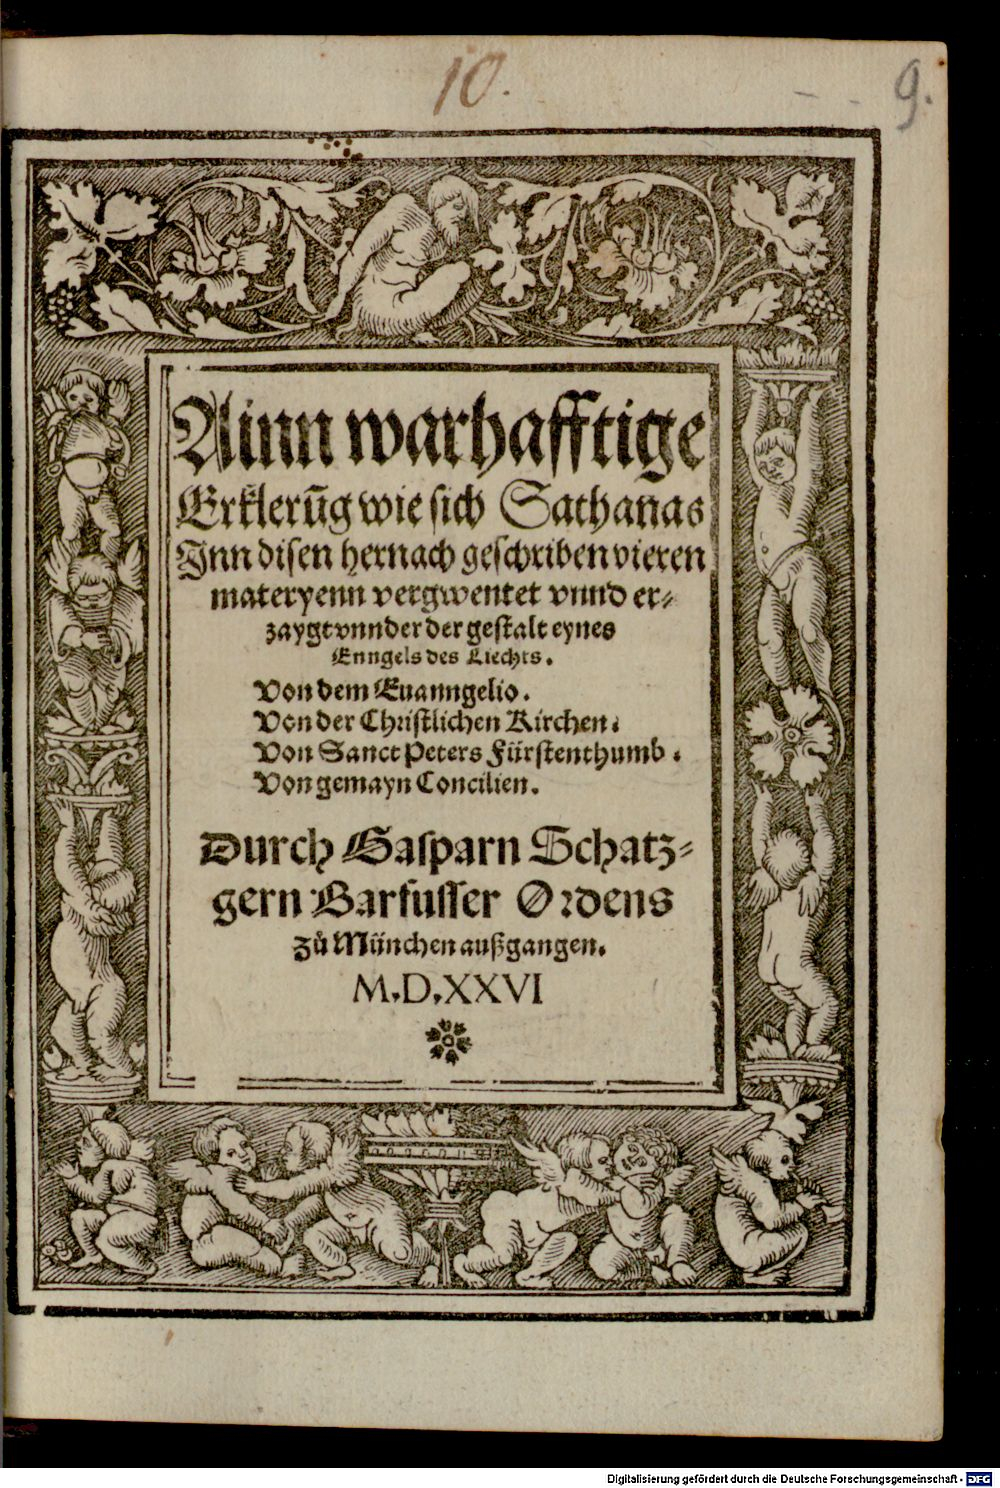 10.
9.
Ainn warhafftige
Erklerūg wie sich Sathanas
Jnn disen hernach geschriben vieren
materyenn vergwentet vnnd er⸗
zaygt vnnder der gestalt eynes
Enngels des Liechts.
Von dem Euanngelio.
Von der Christlichen Kirchen.
Von Sanct Peters Fürstenthumb.
Von gemayn Concilien.
Durch Gasparn Schatz⸗
gern Barfusser Ordens
zů München außgangen.
M.D.XXVI
Digitalisierung gefördert durch die Deutsche Forschungsgemeinschaft - DFG